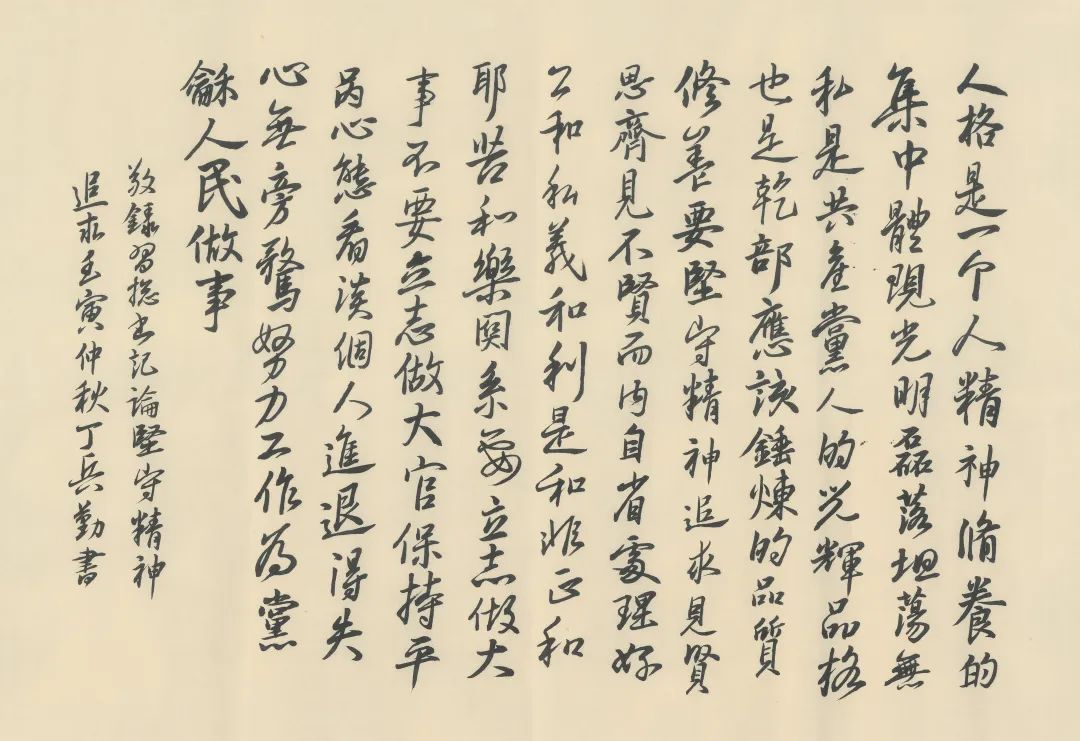 人格是一个人精神脩養的
集中體現光明磊落坦蕩無
私是共產黨人的光輝品格
也是乾部應該錘煉的品質
修養要堅守精神追求見賢
思齊見不賢而內自省處理好
公和私義和利是和非正和
耶苦和樂関系要立志做大
事不要立志做大官保持平
常心態看淡個人進退得失
心無旁騖努力工作為黨
龢人民做事
敬錄習總書記論堅守精神
追求壬寅仲秋丁兵勤書